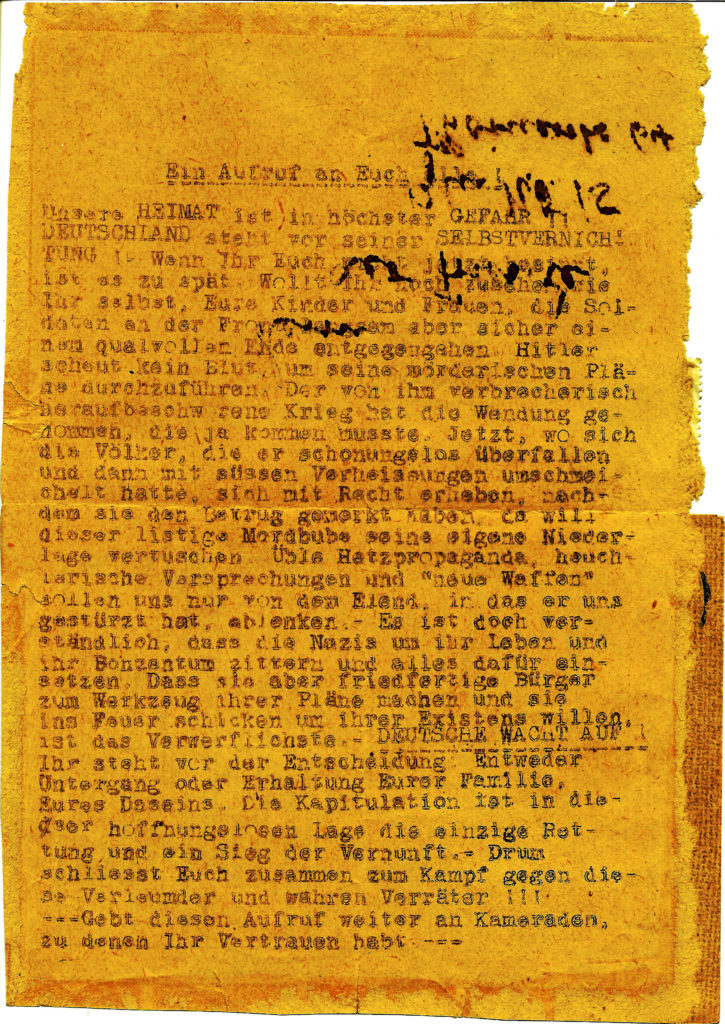 Ein Aufruf an Euch Alle !
Unsere HEIMAT ist in höchster GEFAHR !!
DEUTSCHLAND steht vor seiner SELBSTVERNICH-
TUNG !- Wenn Ihr Euch jetzt
ist es zu spät. Wollt Ihr noch zusehen, wie
Ihr selbst, Eure Kinder und Frauen, die Sol-
daten an der Front aber sicher ei-
nem qualvollen Ende entgegengehen. Hitler
scheut kein Blut, um seine mörderischen Plä-
ne durchzuführen. Der von ihm verbrecherisch
heraufbeschw rene Krieg hat die Wendung ge-
nommen, die ja kommen musste. Jetzt, wo sich
die Völker, die er schonungslos überfallen
und dann mit süssen Verheissungen umschmei-
chelt hatte, sich mit Recht erheben, nach-
dem sie den Betrug gemerkt haben, da will
dieser listige Mordbube seine eigene Nieder-
lage vertuschen. Üble Hetzpropaganda, heuch-
lerische Versprechungen und "neue Waffen"
sollen uns nur von dem Elend, in das er uns
gestürzt hat, ablenken.- Es ist doch ver-
ständlich, dass die Nazis um ihr Leben und
ihr Bonzentum zittern und alles dafür ein-
setzen. Dass sie aber friedfertige Bürger
zum Werkzeug ihrer Pläne machen und sie
ins Feuer schicken um ihrer Existens willen,
ist das Verwerflichste.- DEUTSCHE WACHT AUF !
Ihr steht vor der Entscheidung Entweder
Untergang oder Erhaltung Eurer Familie,
Eures Daseins. Die Kapitulation ist in die-
ser hoffnungslosen Lage die einzige Ret-
tung und ein Sieg der Vernunft.- Drum
schliesst Euch zusammen zum Kampf gegen die-
se Verleumder und wahren Verräter !!!
---Gebt diesen Aufruf weiter an Kameraden,
zu denen Ihr Vertrauen habt ---